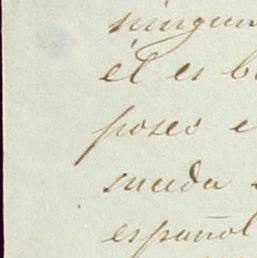 ningun
él es b
poseo e
sueda
español